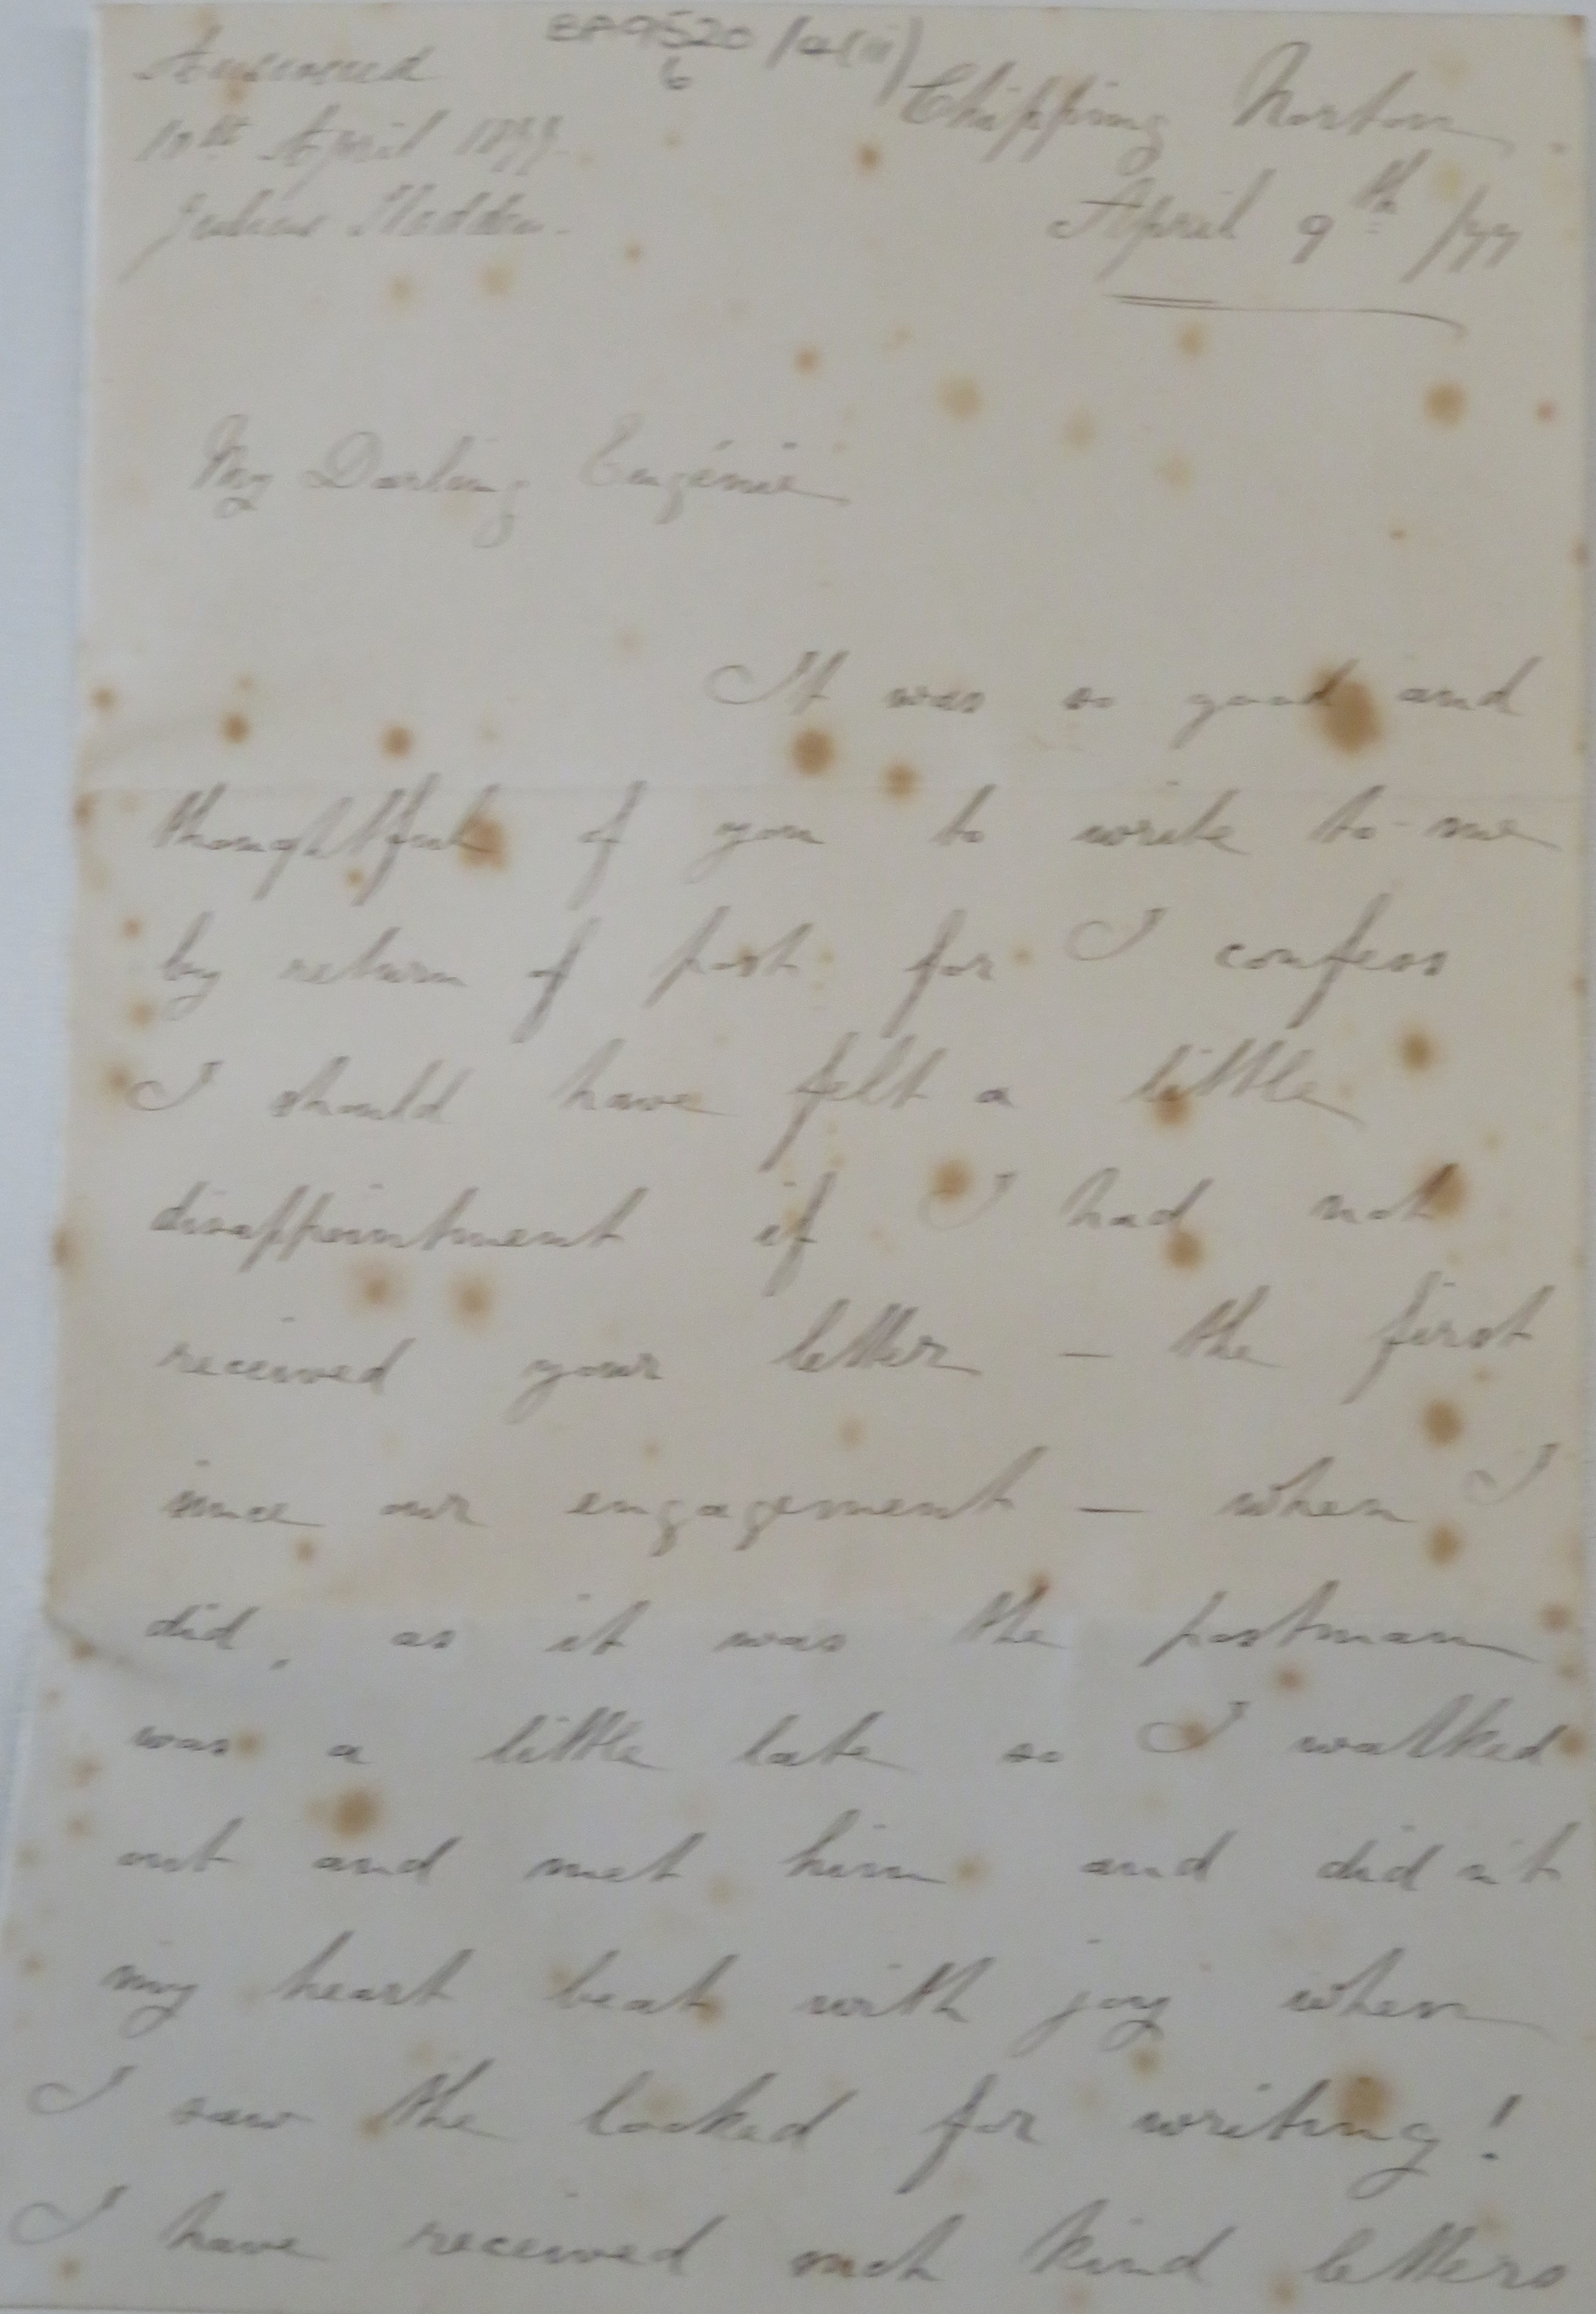 EP9520/a(ii)
6
Answered
10th April 1877.
Chipping Norton.
April 9th /77
My Darling Eugénie
It was so good and
thoughtful of you to write to me
by return of post for I confess
I should have felt a little
disappointment if I had not
received your letter – the first
since our engagement – when I
did, as it was the postman
was a little late so I walked
out and met him and didn't
my heart beat with joy when
I saw the looked for writing!
I have received such kind letters